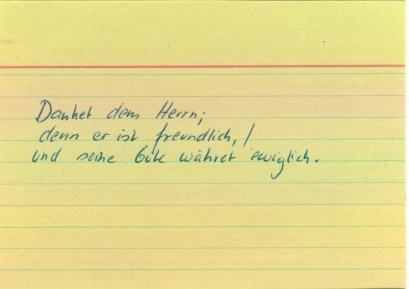 Danket dem Herrn;
denn er ist freundlich, /
und seine Güte währet ewiglich.